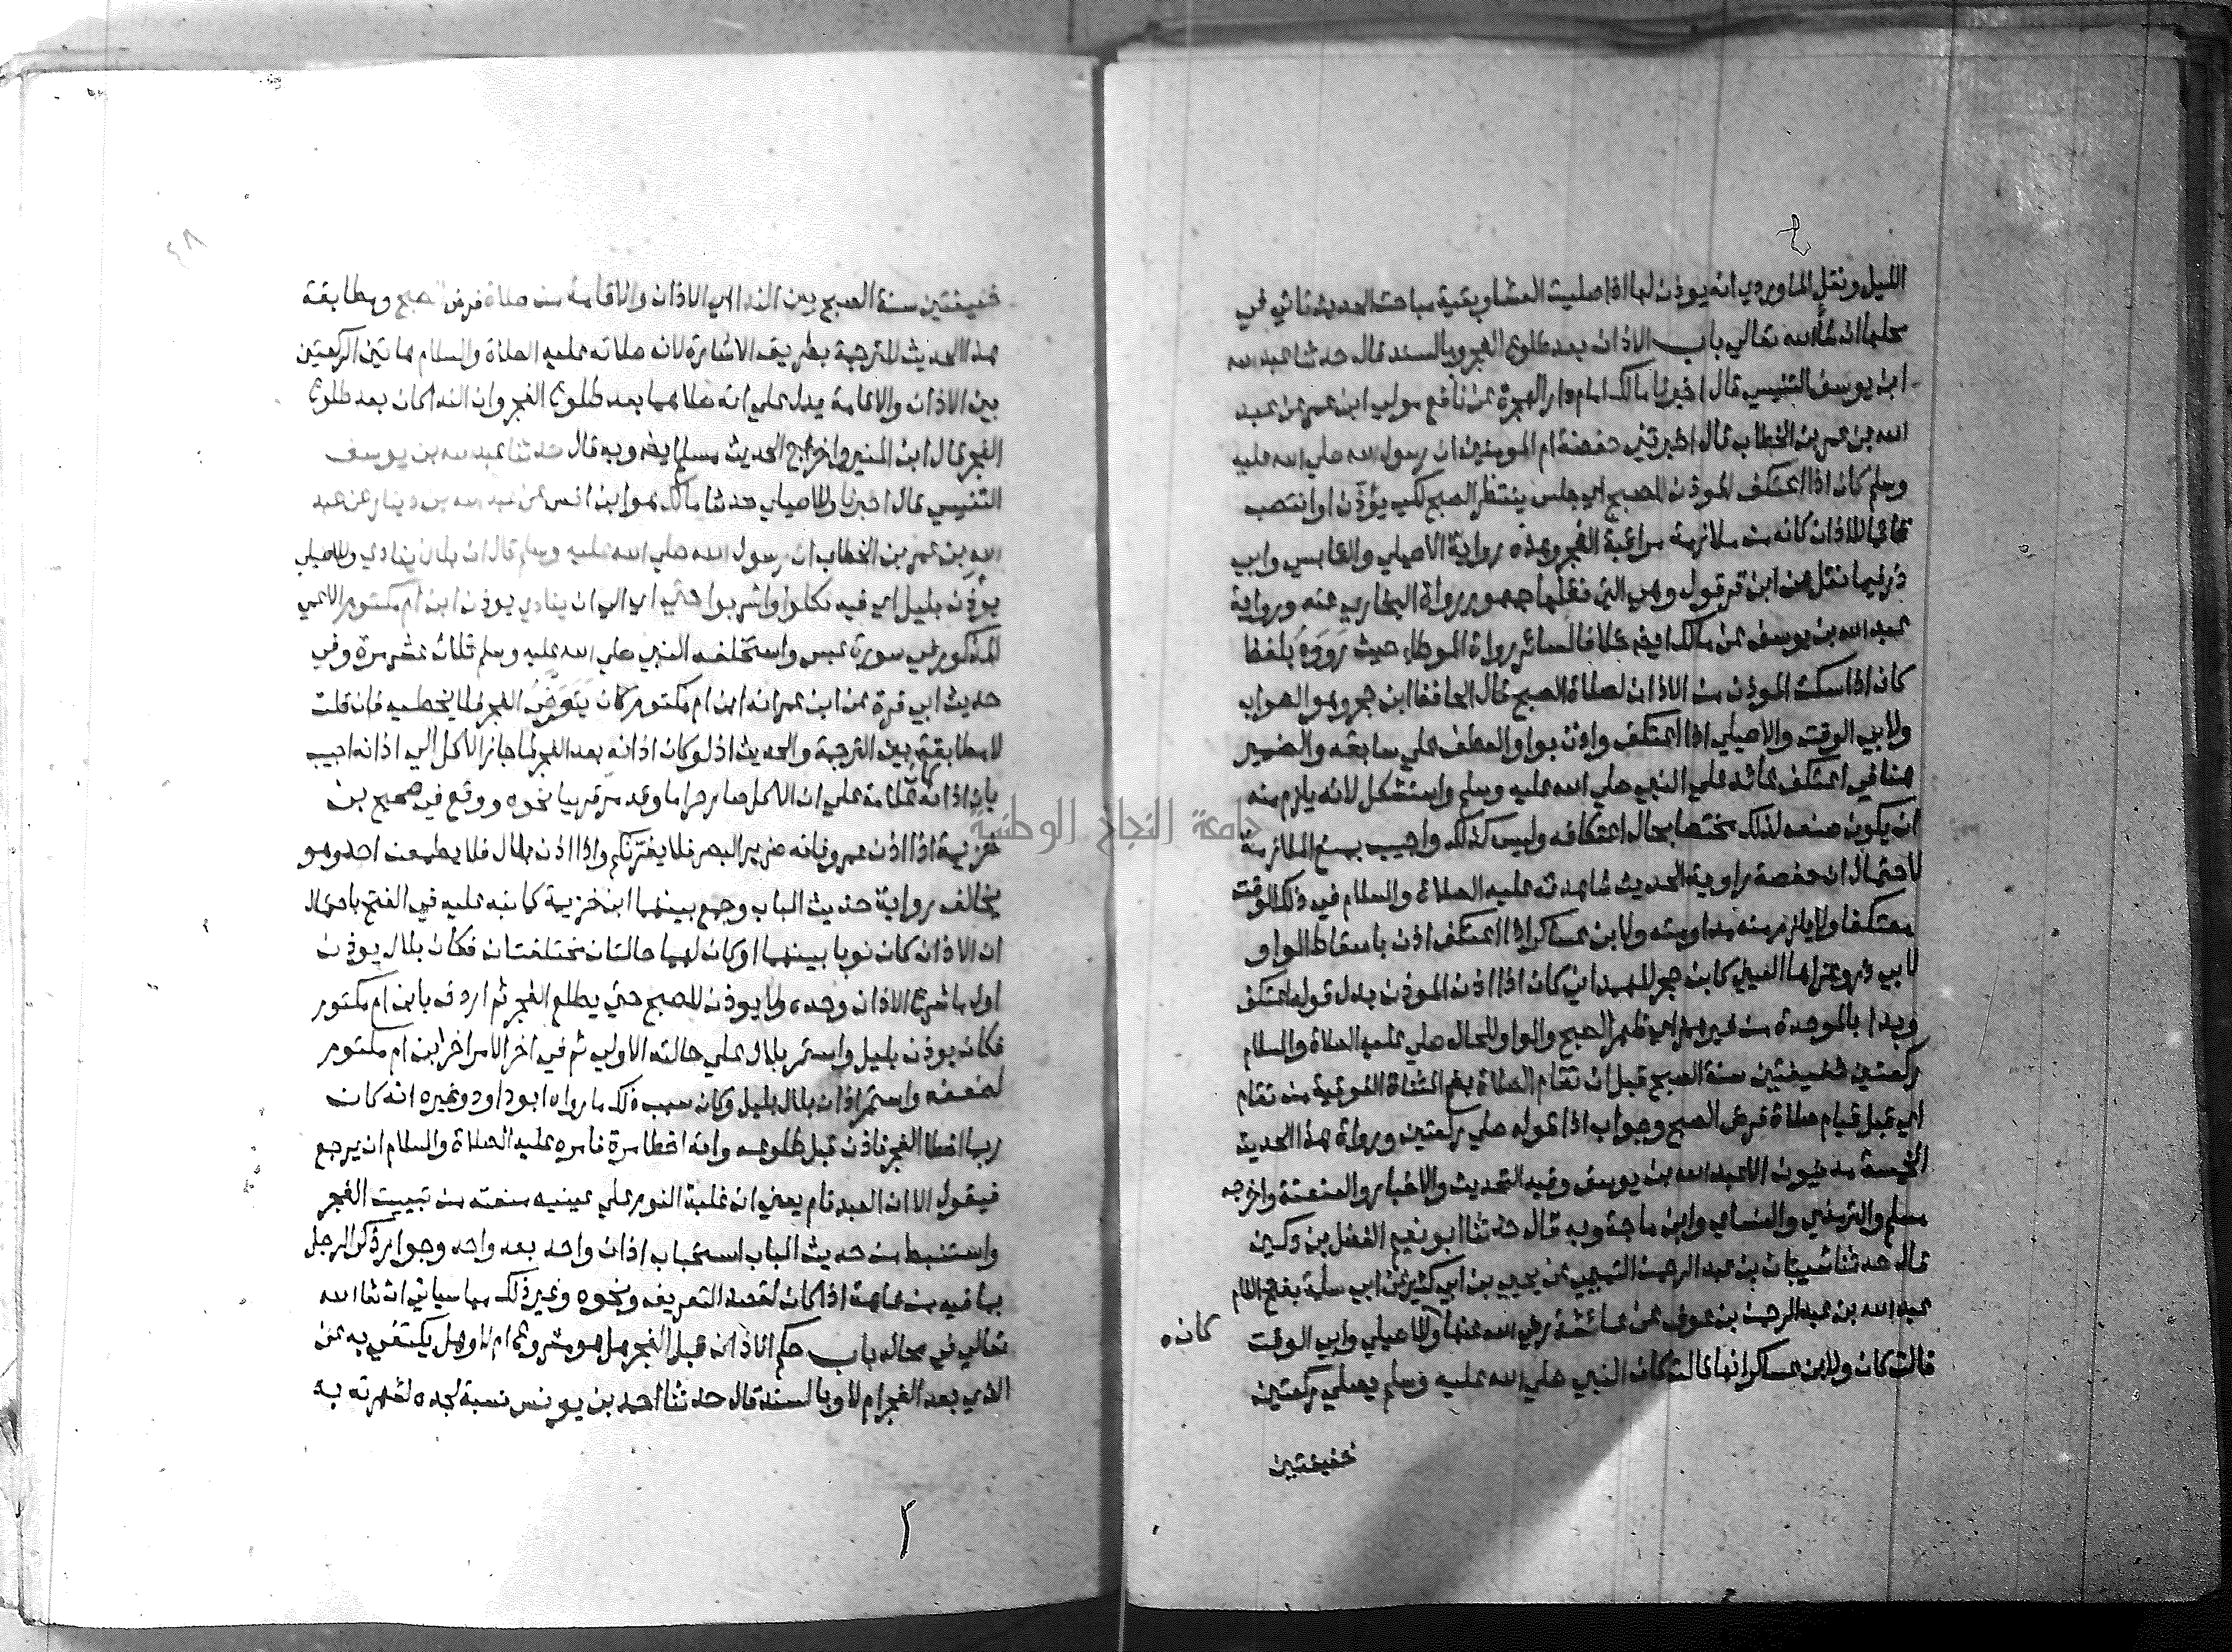 الليل ونقل الماوردي انه يوذن لها اذا صليت العشا وبقية مباحث الحديث تاتي في
محلها ان شا الله تعالي باب الاذان بعد طلوع الفجر وبالسند قال حدثنا عبد الله
ابن يوسف التنيسي قال اخبرنا مالك امام دار الهجرة عن نافع مولي ابن عمر عن عبد
الله بن عمر بن الخطاب قال اخبرتني حفصة ام المومنين ان رسول الله صلي الله عليه
وسلم كان اذا اعتكف الموذن للصبح اي جلس ينتظر الصبح لكي يؤذن او انتصب
قائما للاذان كانه من ملازمة مراقبة الفجر وهذه رواية الاصيلي والقابسي وابي
ذر فيما نقل عن ابن قرقول وهي التي نقلها جمهور رواة البخاري عنه ورواية
عبد الله بن يوسف عن مالك ايضا خلافا لسائر رواة الموطا حيث رووه بلفظ
كان اذا سكت الموذن من الاذان لصلاة الصبح قال الحافظ ابن حجر وهو الصواب
ولابي الوقت والاصيلي اذا اعتكف واذن بواو العطف علي سابقه والضمير
هنا في اعتكف عائد علي النبي صلي الله عليه وسلم واستشكل لانه يلزم منه
ان يكون صنعه لذلك مختصا بحال اعتكافه وليس كذلك واجيب بمنع الملازمة
لاحتمال ان حفصة راوية الحديث شاهدته عليه الصلاة والسلام في ذلك الوقت
معتكفا ولا يلزم منه مداومته ولابن عساكر اذا اعتكف اذن باسقاط الواو
لابي ذر وعزاها العيني كابن حجر للهمداني كان اذا اذن الموذن بدل قوله اعتكف
وبدا بالموحدة من غير همز اي ظهر الصبح والواو للحال صلي عليه الصلاة والسلام
ركعتين خفيفتين سنة الصبح قبل ان تقام الصلاة بضم المثناة الفوقية من تقام
اي قبل قيام صلاة فرض الصبح وجواب اذا قوله صلي ركعتين ورواة هذا الحديث
الخمسة مدنيون الا عبد الله بن يوسف وفيه التحديث والاخبار والعنعنة واخرجه
مسلم والترمذي والنساي وابن ماجة وبه قال حدثنا ابو نعيم الفضل بن دكين
قال حدثنا شيبان بن عبد الرحمن التميمي عن يحيي بن ابي كثير عن ابي سلمة بفتح اللام
عبد الله بن عبد الرحمن بن عوف عن عائشة رضي الله عنها وللاصيلي وابي الوقت
كان
قالت كان ولابن عساكر انها قالت كان النبي صلي الله عليه وسلم يصلي ركعتين
خفيفتين
٤٨
خفيفتين سنة الصبح بين الندا اي الاذان والاقامة من صلاة فرض الصبح ومطابقة
هذا الحديث للترجمة بطريق الاشارة لانه صلاته عليه الصلاة والسلام هاتين الركعتين
بين الاذان والاقامة يدل علي انه صلاهما بعد طلوع الفجر وان الندا كان بعد طلوع
الفجر قال ابن المنير واخرج الحديث مسلم ايضا وبه قال حدثنا عبد الله بن يوسف
التنيسي قال اخبرنا وللاصيلي حدثنا مالك هو ابن انس عن عبد الله بن دينار عن عبد
الله بن عمر بن الخطاب ان رسول الله صلي الله عليه وسلم قال ان بلال ينادي وللاصيلي
يوذن بليل اي فيه فكلوا واشربوا حتي اي الي ان ينادي يوذن ابن ام مكتوم الاعمي
المذكور في سورة عبس واستخلفه النبي صلي الله عليه وسلم ثلاث عشر مرة وفي
حديث ابي قرة عن ابن عمر انه ابن ام مكتوم كان يتوخي الفجر فلا يخطيه فان قلت
لا مطابقة بين الترجمة والحديث اذ لو كان اذانه بعد الفجر لما جاز الاكل الي اذانه اجيب
بان اذانه كان علامة علي ان الاكل صار حراما وقد مر قريبا نحوه ووقع في صحيح بن
خزيمة اذا اذن عمرو فانه ضرير البصر فلا يغرنكم واذا اذن بلال فلا يطعمن احد وهو
يخالف رواية حديث الباب وجمع بينهما ابن خزيمة كما نبه عليه في الفتح باحتمال
ان الاذان كان نوبا بينهما او كان لهما حالتان مختلفتان فكان بلال يوذن
اول ما شرع الاذان وحده ولا يوذن للصبح حتي يطلع الفجر ثم اردف بابن ام مكتوم
فكان يوذن بليل واستمر بلال علي حالته الاولي ثم في اخر الامر اخر ابن ام مكتوم
لضعفه واستمر اذان بلال بليل وكان سبب ذلك ما رواه ابو داود وغيره انه كان
ربما اخطا الفجر فاذن قبل طلوعه وانه اخطا مرة فامره عليه الصلاة والسلام ان يرجع
فيقول الا ان العبد نام يعني ان غلبة النوم علي عينيه منعته من تبييت الفجر
واستنبط من حديث الباب استحباب اذان واحد بعد واحد وجواز ذكر الرجل
بما فيه من عاهة اذا كان لقصد التعريف ونحوه وغير ذلك مما سياتي ان شا الله
تعالي في محاله باب حكم الاذان قبل الفجر هل هو مشروع ام لا وهل يكتفي به عن
الذي بعد الفجر ام لا وبالسند قال حدثنا احمد بن يونس نسبة لجده لشهرته به
جامعة النجاح الوطنية